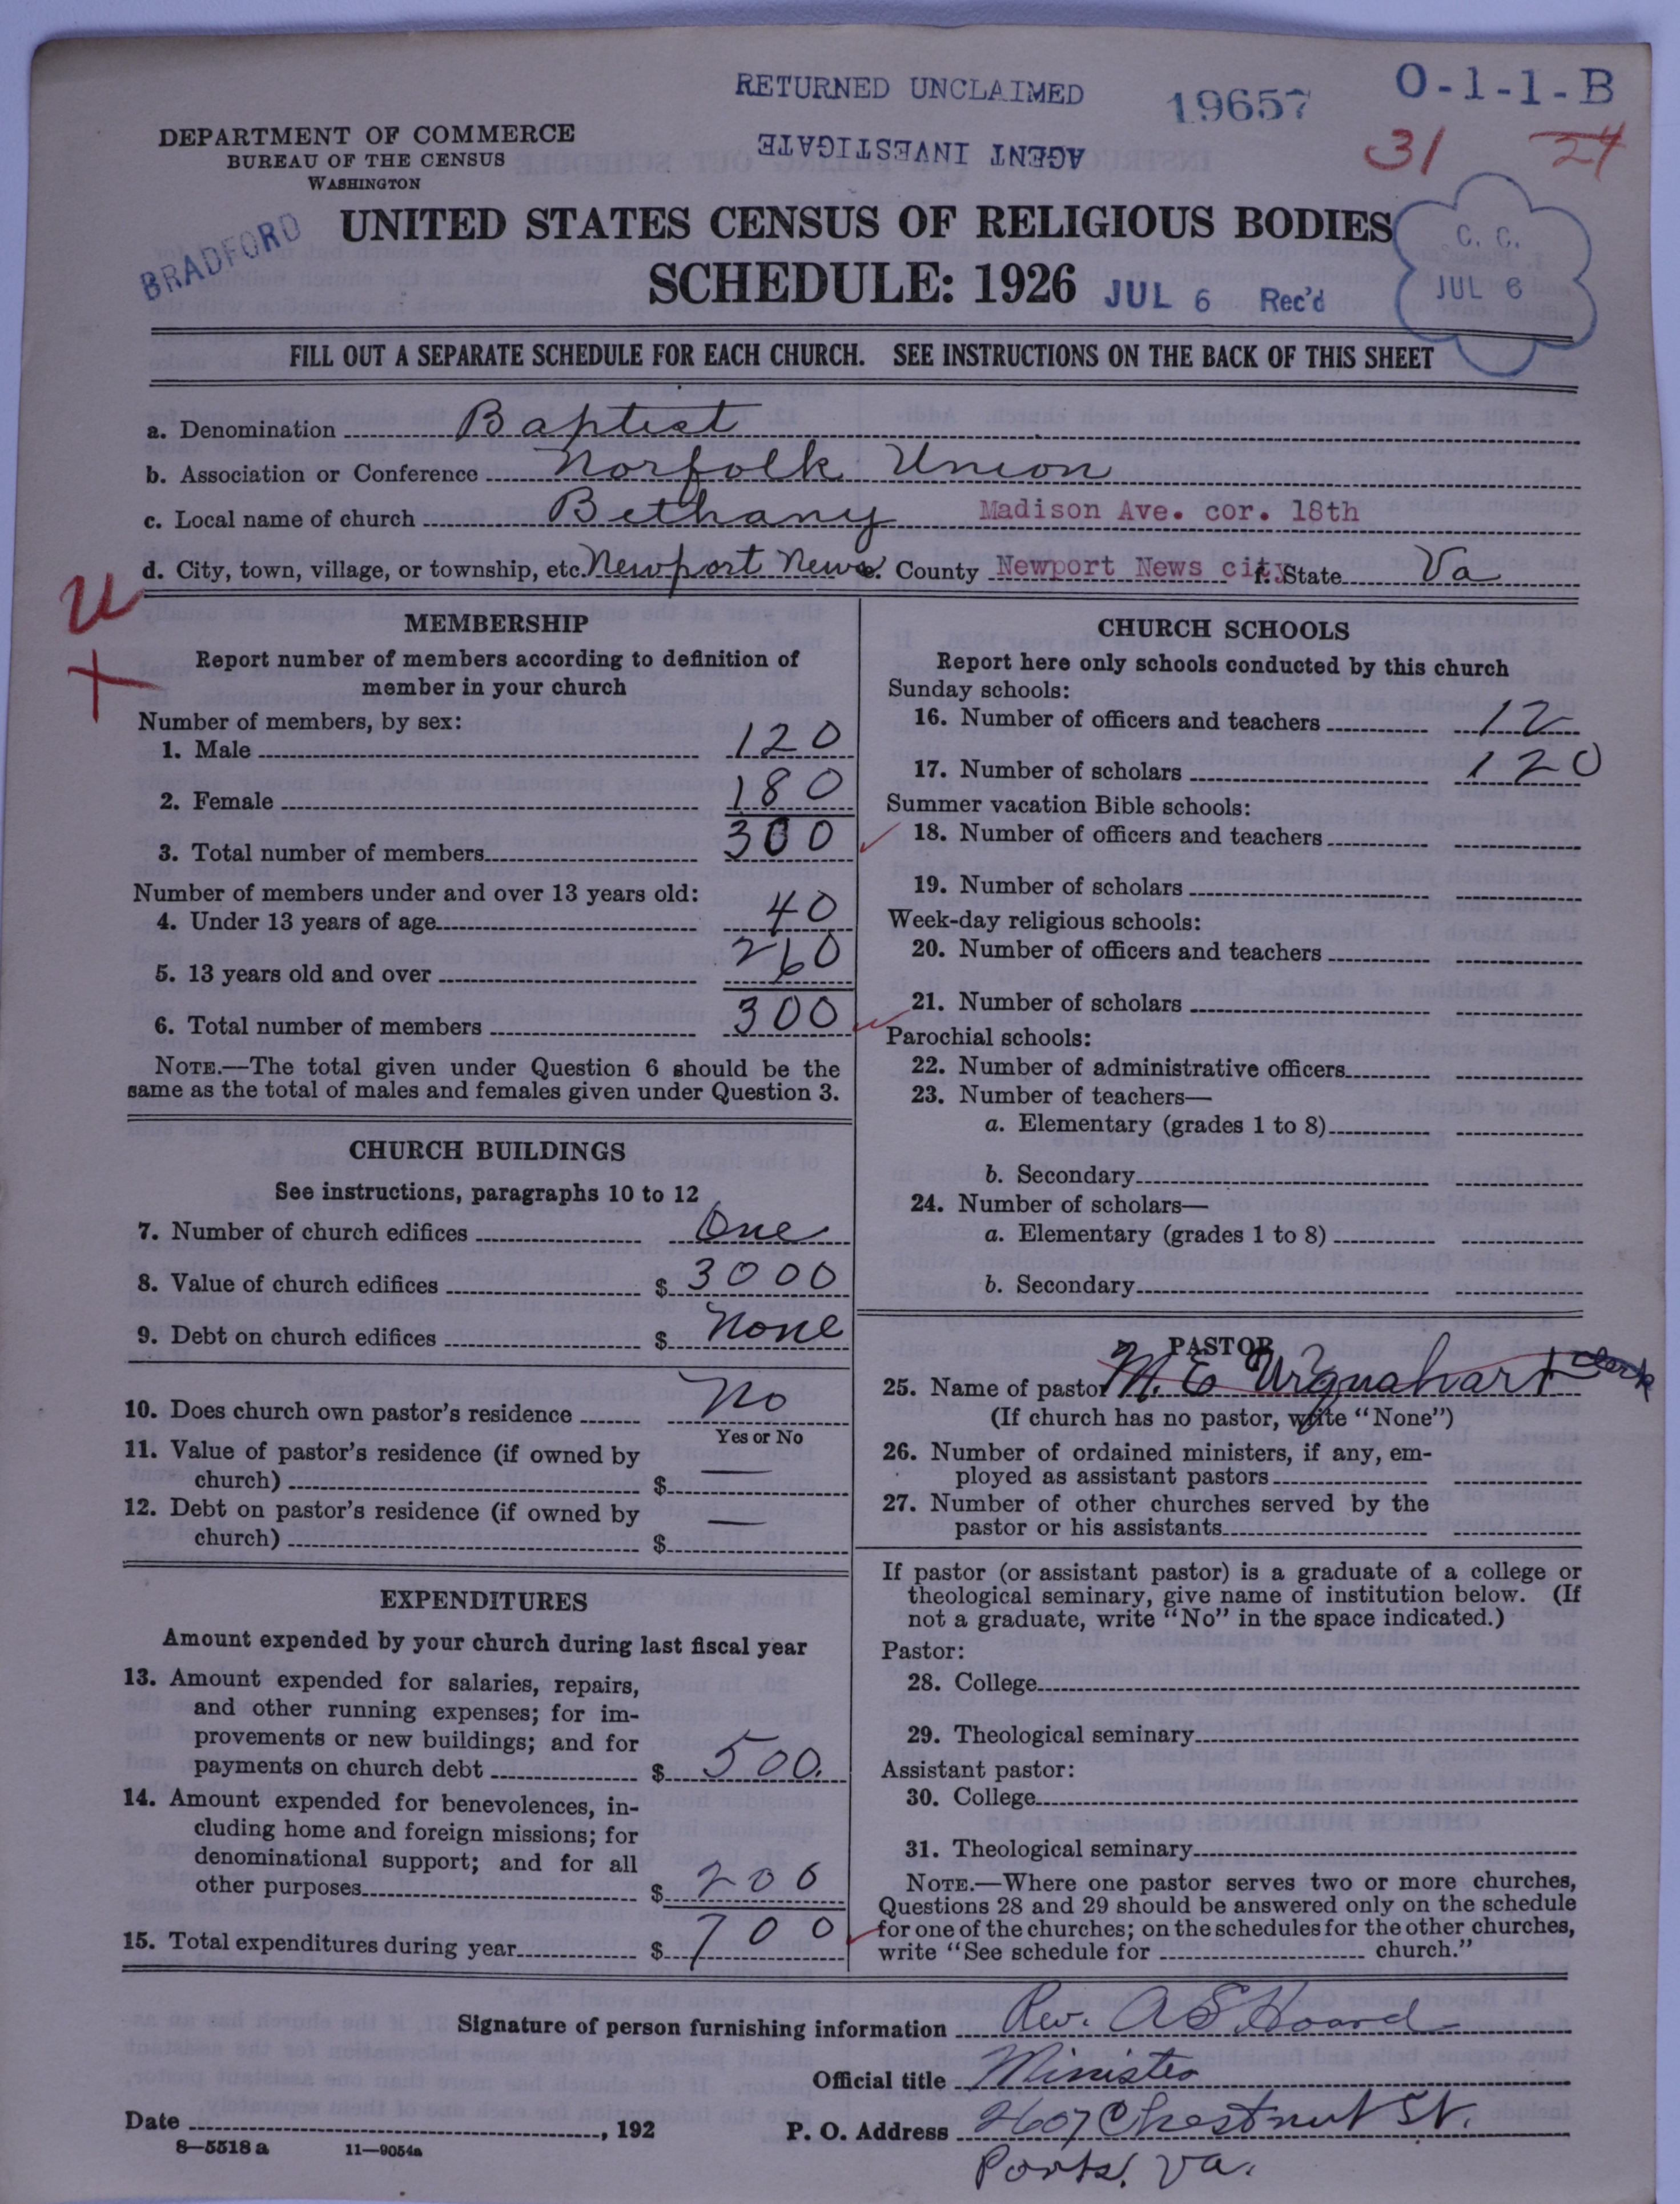 RETURNED UNCLAIMED
AGENT INVESTIGATE
19657
O-1-1-B
31 24
DEPARTMENT OF COMMERCE
BUREAU OF THE CENSUS
WASHINGTON
BRADFORD
UNITED STATES CENSUS OF RELIGIOUS BODIES
SCHEDULE: 1926
JUL 6 Rec'd
C. C.
JUL 6
FILL OUT A SEPARATE SCHEDULE FOR EACH CHURCH. SEE INSTRUCTIONS ON THE BACK OF THIS SHEET
a. Denomination Baptist
b. Association or Conference Norfolk Union
c. Local name of church Bethany Madison Ave. cor. 18th
d. City, town, village, or township, etc. Newport News e. County Newport News city f. State Va
MEMBERSHIP
Report number of members according to definition of
member in your church
Number of members, by sex:
1. Male 120
2. Female 180
3. Total number of members 300
Number of members under and over 13 years old:
4. Under 13 years of age 40
5. 13 years old and over 260
6. Total number of members 300
NOTE.—The total given under Question 6 should be the
same as the total of males and females given under Question 3.
CHURCH BUILDINGS
See instructions, paragraphs 10 to 12
7. Number of church edifices One
8. Value of church edifices $ 3000
9. Debt on church edifices $ None
10. Does church own pastor's residence No
Yes or No
11. Value of pastor's residence (if owned by
church) $ —
12. Debt on pastor's residence (if owned by
church) $ —
EXPENDITURES
Amount expended by your church during last fiscal year
13. Amount expended for salaries, repairs,
and other running expenses; for im-
provements or new buildings; and for
payments on church debt $ 500.
14. Amount expended for benevolences, in-
cluding home and foreign missions; for
denominational support; and for all
other purposes $ 200
15. Total expenditures during year $ 700
CHURCH SCHOOLS
Report here only schools conducted by this church
Sunday schools:
16. Number of officers and teachers 12
17. Number of scholars 120
Summer vacation Bible schools:
18. Number of officers and teachers
19. Number of scholars
Week-day religious schools:
20. Number of officers and teachers
21. Number of scholars
Parochial schools:
22. Number of administrative officers
23. Number of teachers—
a. Elementary (grades 1 to 8)
b. Secondary
24. Number of scholars—
a. Elementary (grades 1 to 8)
b. Secondary
PASTOR
25. Name of pastor M. E Urquahart Clerk
(If church has no pastor, write "None")
26. Number of ordained ministers, if any, em-
ployed as assistant pastors
27. Number of other churches served by the
pastor or his assistants
If pastor (or assistant pastor) is a graduate of a college or
theological seminary, give name of institution below. (If
not a graduate, write "No" in the space indicated.)
Pastor:
28. College
29. Theological seminary
Assistant pastor:
30. College
31. Theological seminary
NOTE.—Where one pastor serves two or more churches,
Questions 28 and 29 should be answered only on the schedule
for one of the churches; on the schedules for the other churches,
write "See schedule for church."
Signature of person furnishing information Rev. A S Hoard
Official title Minister
Date , 192 P. O. Address 2607 Chestnut St.
Ports. Va.
8—5518 a 11—9054a